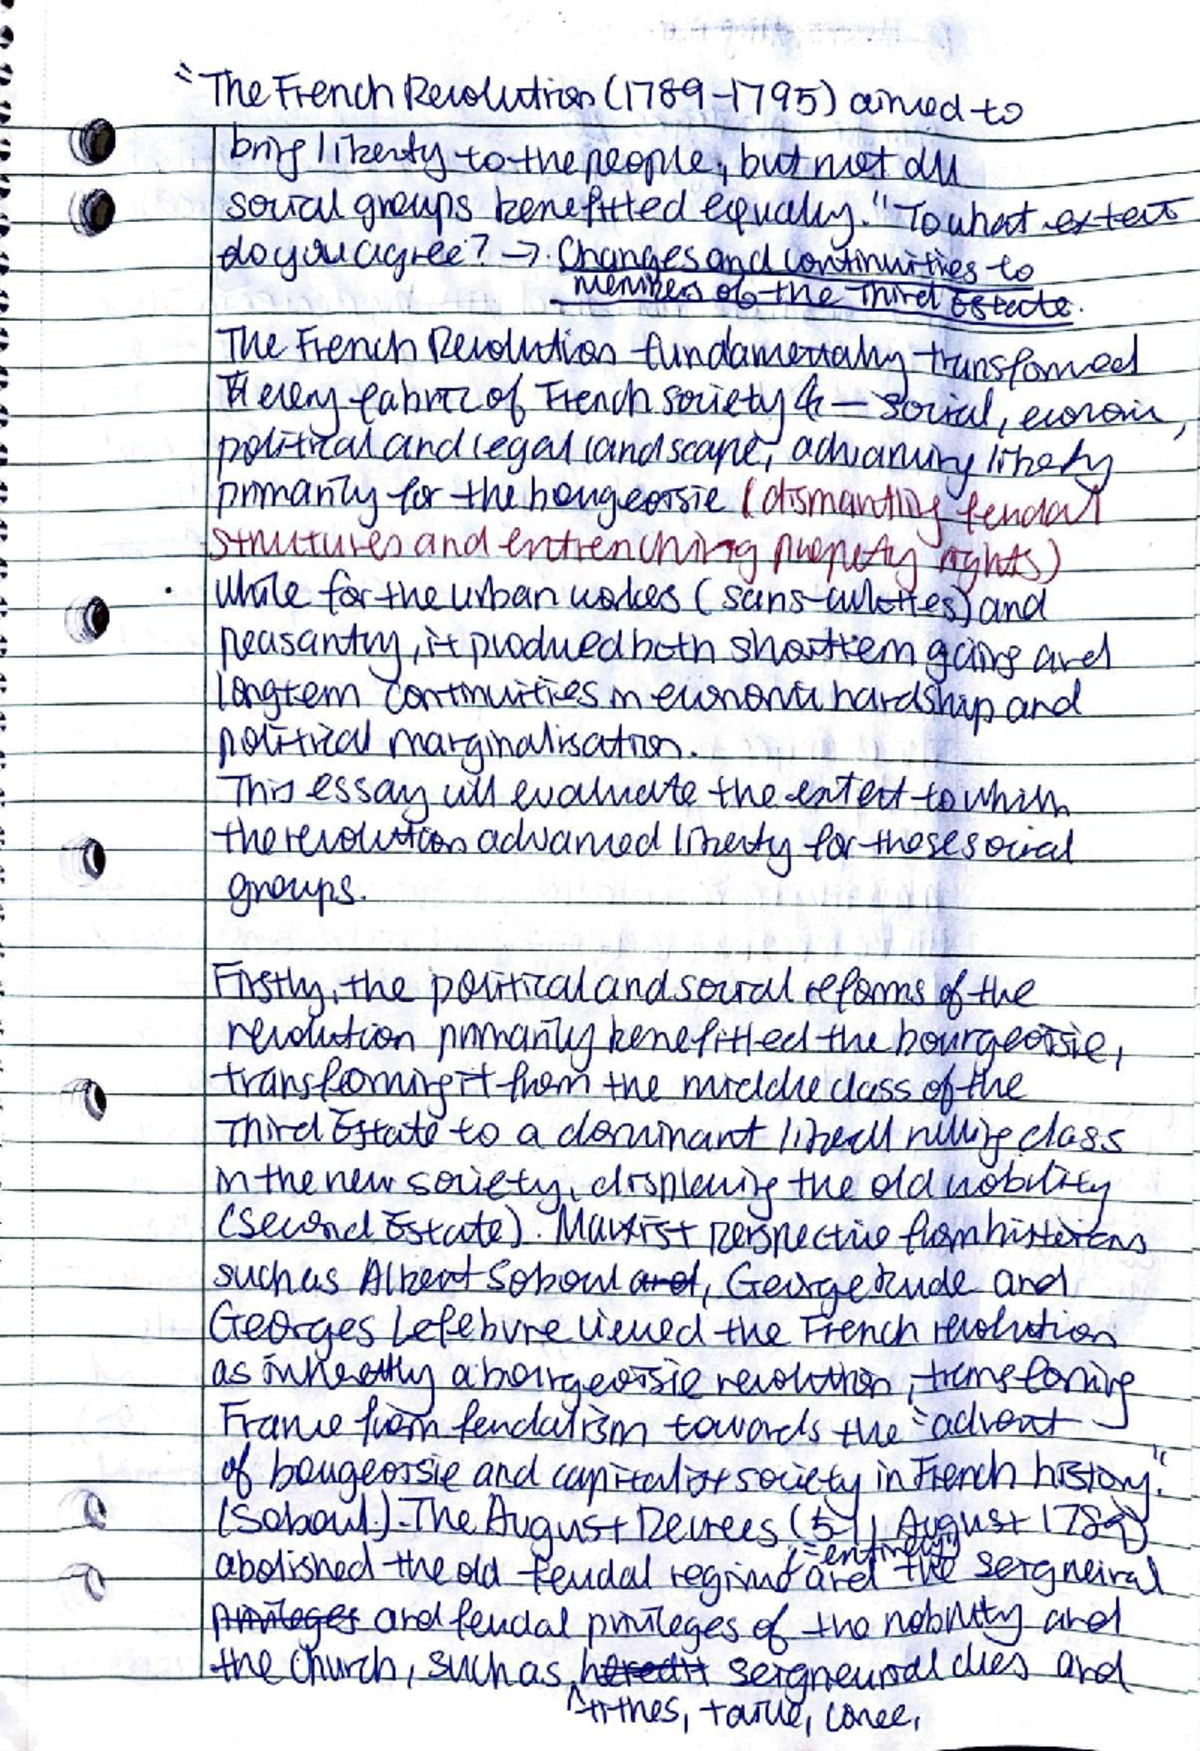 "The French Revolution (1789-1795) aimed to
bring liberty to the people, but not all
social groups benefitted equally." To what extent
do you agree? → Changes and continuities to
members of the Third Estate.
The French Revolution fundamentally transformed
the very fabric of French society — social, economic,
political and legal landscape, advancing liberty
primarily for the bourgeoisie (dismantling feudal
structures and entrenching property rights)
while for the urban workers (sans-culottes) and
peasantry, it produced both short term gains and
longterm continuities in economic hardship and
political marginalisation.
This essay will evaluate the extent to which
the revolution advanced liberty for these social
groups.
Firstly, the political and social reforms of the
revolution primarily benefitted the bourgeoisie,
transforming it from the middle class of the
Third Estate to a dominant liberal ruling class
in the new society, displacing the old nobility
(Second Estate). Marxist perspective from historians
such as Albert Soboul and, George Rude and
Georges Lefebvre viewed the French revolution
as inherently a bourgeoisie revolution, transforming
France from feudalism towards the "advent
of bourgeoisie and capitalist society in French history."
(Soboul.). The August Decrees (5-11 August 1789)
abolished the old feudal regime ("entirely") and the seigneurial
privileges and feudal privileges of the nobility and
the church, such as seigneurial dues and
tithes, taille, corvee,